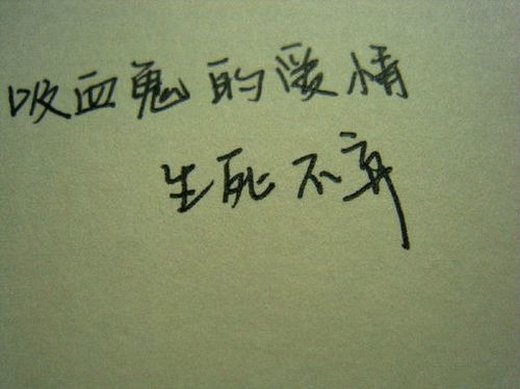 吸血鬼的爱情
生死不弃